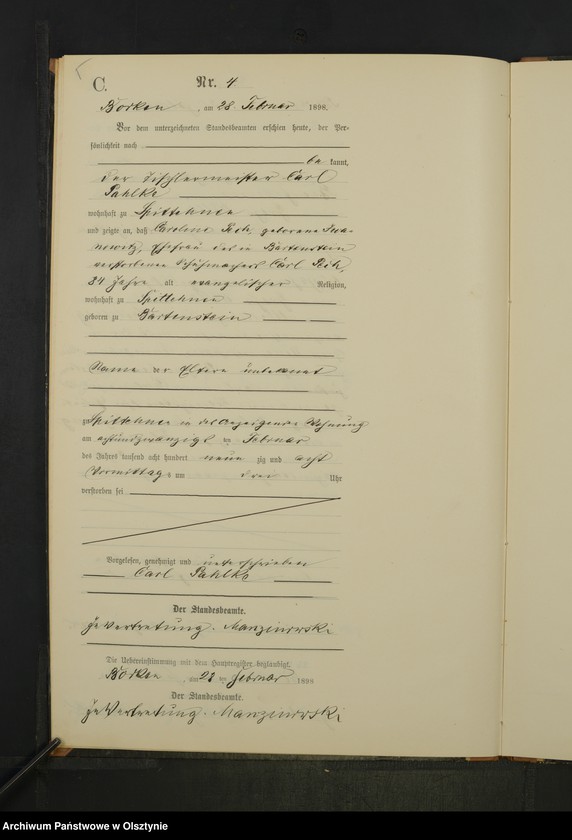 C. Nr. 4
Borken, am 28 Februar 1898.
Vor dem unterzeichneten Standesbeamten erschien heute, der Per-
sönlichkeit nach
be kannt,
der Tischlermeister Carl
Pahlke
wohnhaft zu Spittehnen
und zeigte an, daß Caroline geborene
Ehefrau des in Bartenstein
verstorbenen Schuhmachers Carl
84 Jahre alt evangelischer Religion,
wohnhaft zu Spittehnen
geboren zu Bartenstein
Name der Eltern unbekannt
zu Spittehnen in des Anzeigenden Wohnung
am achtundzwanzigsten Februar
des Jahres tausend acht hundert neun zig und acht
Vormittags um drei Uhr
verstorben sei
Vorgelesen, genehmigt und unterschrieben
Carl Pahlke
Der Standesbeamte.
In Vertretung. Manzinowski
Die Uebereinstimmung mit dem Hauptregister beglaubigt.
Borken, am 28 Februar 1898
Der Standesbeamte.
In Vertretung. Manzinowski
Archiwum Państwowe w Olsztynie